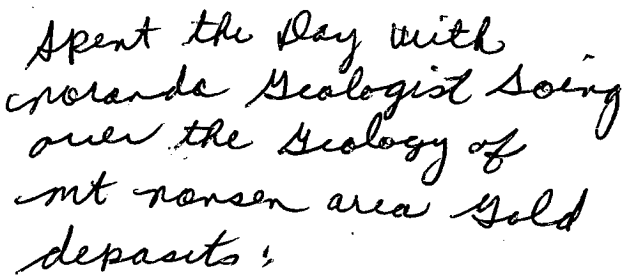 Spent the Day with
Noranda Geologist Going
over the Geology of
mt nansen area Gold
deposits.